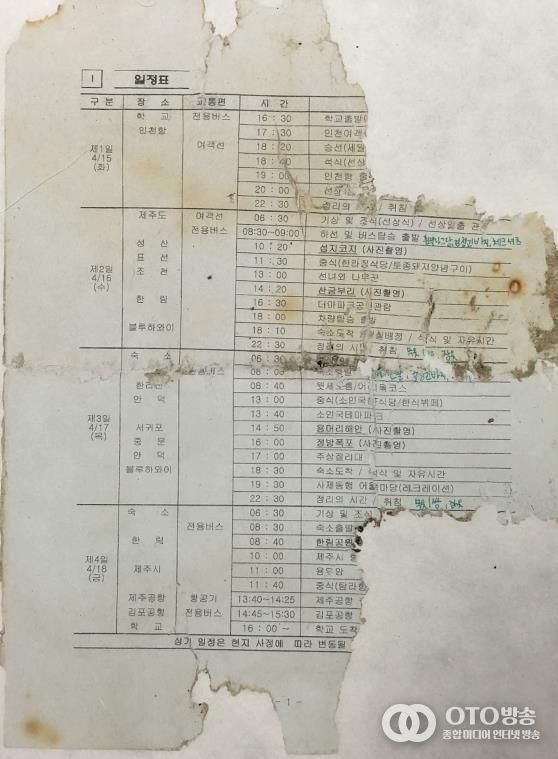 Ⅰ 일정표
구 분 장 소 교통편 시 간
제1일 4/15 (화)
학 교 전용버스 16 : 30 학교출발
인천항 17 : 30 인천여객
여객선 18 : 20 승선(세월
18 : 40 석식(선상
19 : 00 인천항 출
20 : 00 선상
22 : 30 정리의 / 취침
제2일 4/16 (수)
제주도 여객선 06 : 30 기상 및 조식(선상식) / 선상일출 관
전용버스 08:30~09:00 하선 및 버스탑승 출발
성 산 10 : 20 섭지코지 (사진촬영)
표 선 11 : 30 중식(한라정식당/토종돼지양념구이)
조 천 13 : 00 선녀와 나무꾼
14 : 20 산굼부리 (사진촬영)
한 림 16 : 30 더마파크공연관람
18 : 00 차량탑승 출발
블루하와이 18 : 10 숙소도착 실배정 / 석식 및 자유시간
22 : 30 정리의 시간 취침
제3일 4/17 (목)
숙 소 06 : 30
08 : 00 숙소출발
한라산 08 : 40 윗세오름/어리목코스
안 덕 13 : 00 중식(소인국 식당/한식뷔페)
13 : 40 소인국테마파크
서귀포 14 : 50 용머리해안 (사진촬영)
중 문 16 : 00 정방폭포 (사진촬영)
안 덕 17 : 00 주상절리대
블루하와이 18 : 30 숙소도착 / 석식 및 자유시간
19 : 30 사제동행 어울 마당(레크레이션)
22 : 30 정리의 시간 / 취침
제4일 4/18 (금)
숙 소 06 : 30 기상 및 조식
전용버스 08 : 30 숙소출발
한 림 08 : 40 한림공원
제주시 10 : 00 제주시
11 : 00 용두암
11 : 40 중식(탐라
제주공항 항공기 13:40~14:25 제주공항
김포공항 전용버스 14:45~15:30 김포공항
학 교 16 : 00 ~ 학교 도착
상기 일정은 현지 사정에 따라 변동될
- 1 -
OTO방송
종합 미디어 인터넷 방송